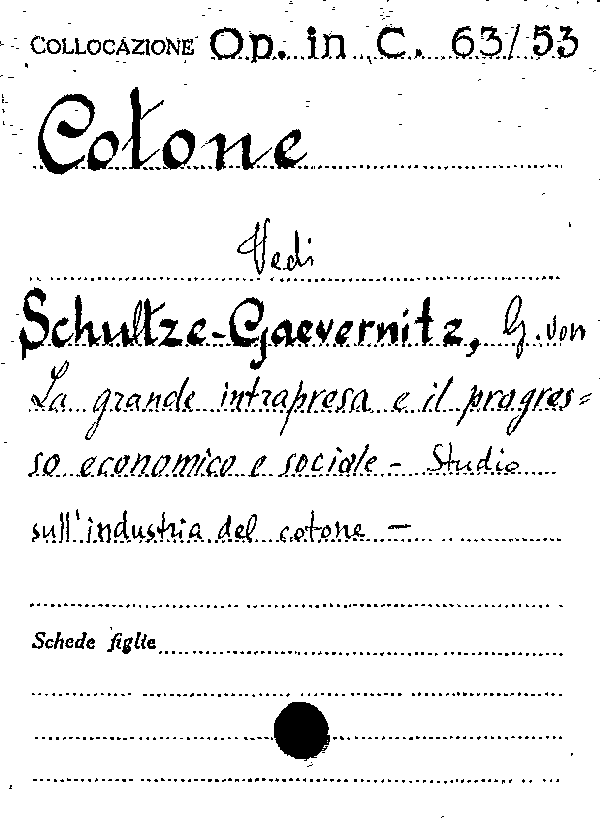 COLLOCAZIONE Op. in C. 63/53
Cotone
Vedi
Schultze-Gaevernitz, G. von
La grande intrapresa e il progres=
so economico e sociale - Studio
sull'industria del cotone -
Schede figlie